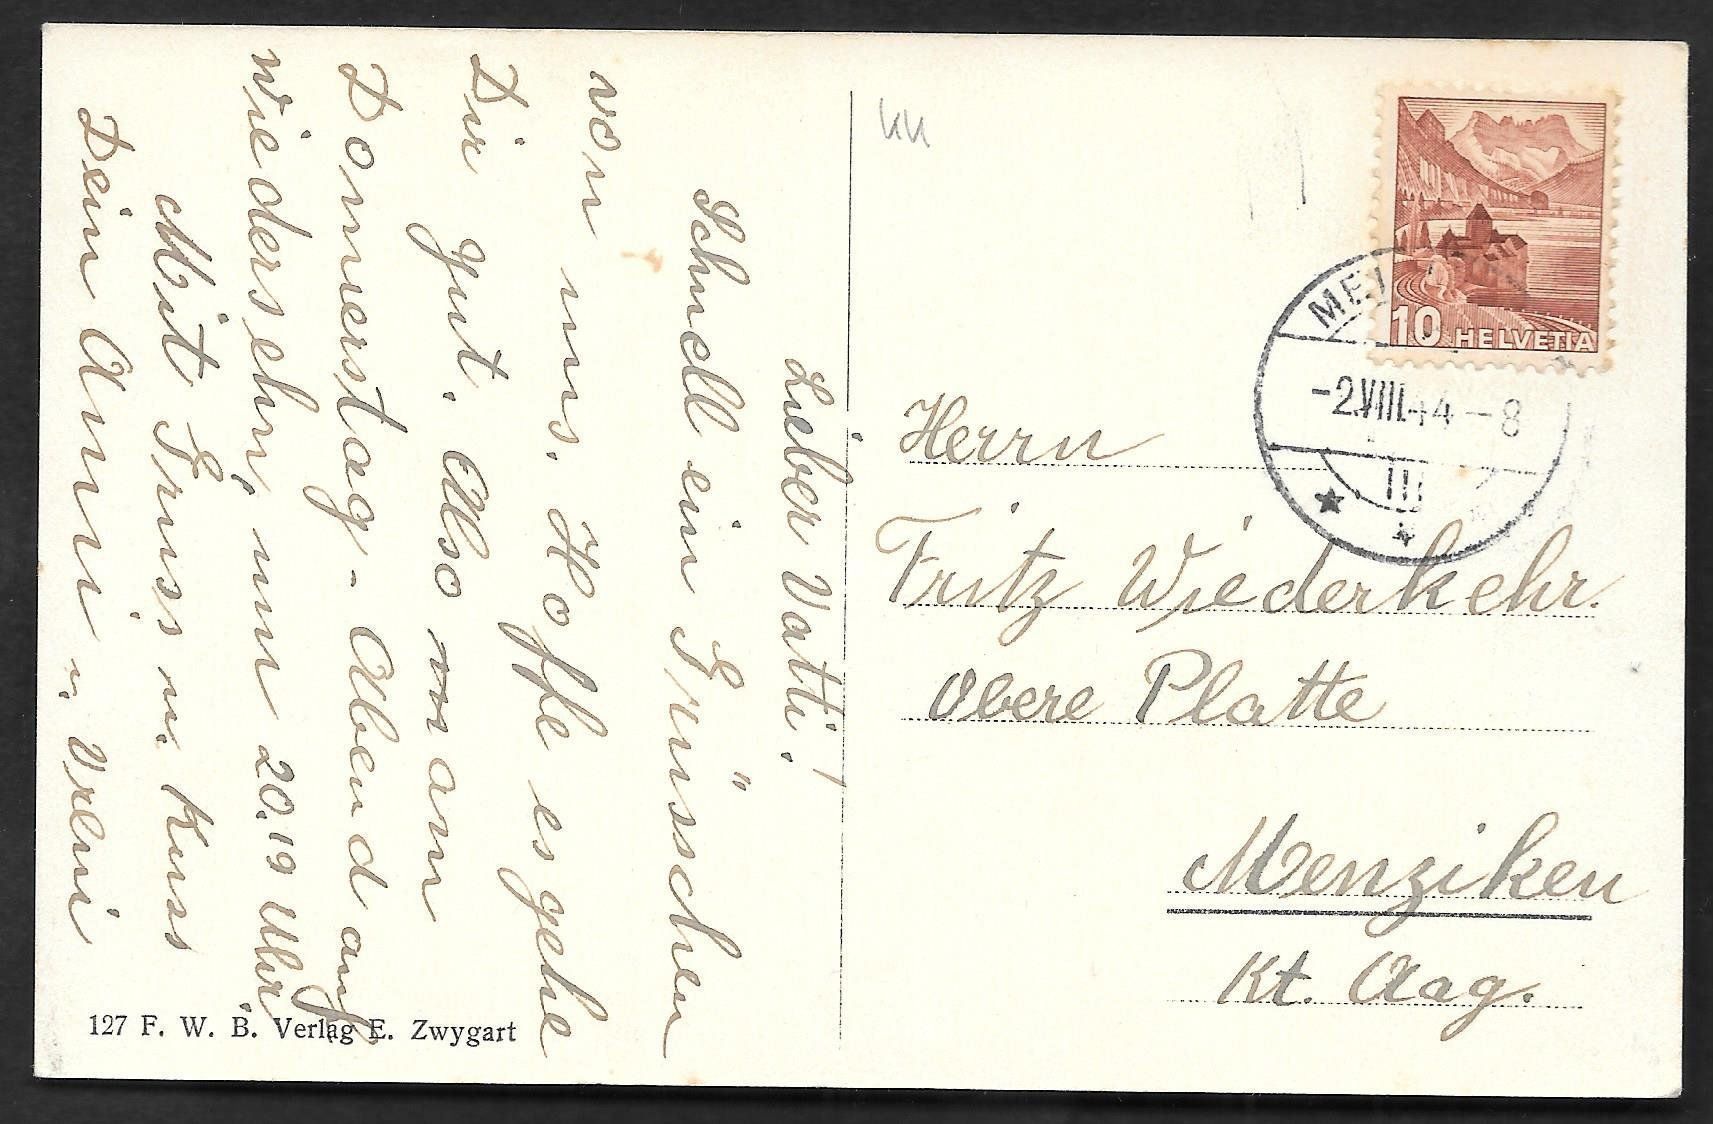 Lieber Vatti!
Schnell ein Grüsschen
von uns. Hoffe es gehe
Dir gut. Also am
Donnerstag-Abend auf
Wiedersehn, um 20.19 Uhr
Mit Gruss u. Kuss
Dein Anni u. Vreni
127 F. W. B. Verlag E. Zwygart
10 HELVETIA
-2.VIII.44-8
III
Herrn
Fritz Wiederkehr.
obere Platte
Menziken
Kt. Aag.